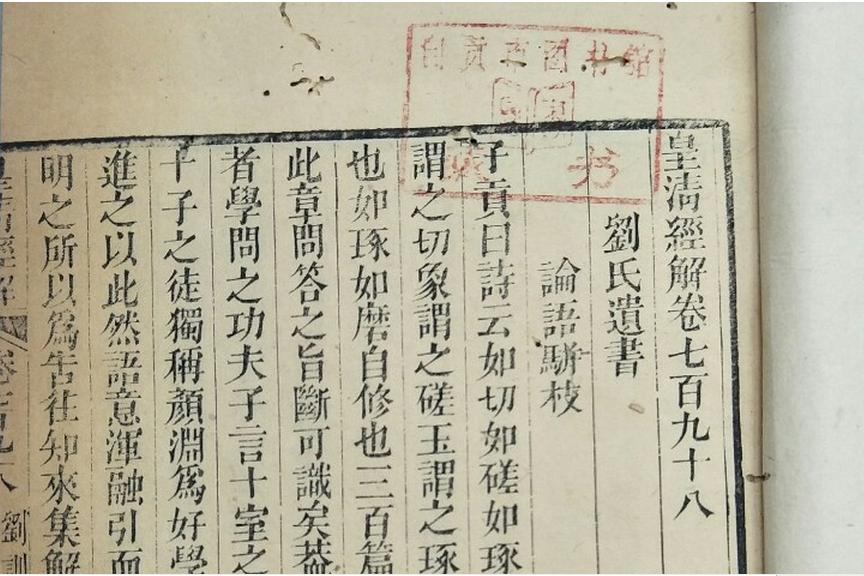 自貢市图书館
书
皇清經解卷七百九十八
劉氏遺書
論語駢枝
子貢曰詩云如切如磋如琢
謂之切象謂之磋玉謂之琢
也如琢如磨自修也三百篇
此章問答之旨斷可識矣葢
者學問之功夫子言十室之
十子之徒獨稱顏淵爲好學
進之以此然語意渾融引而
明之所以爲告往知來集解
皇清經解
卷七百九十八
劉訓